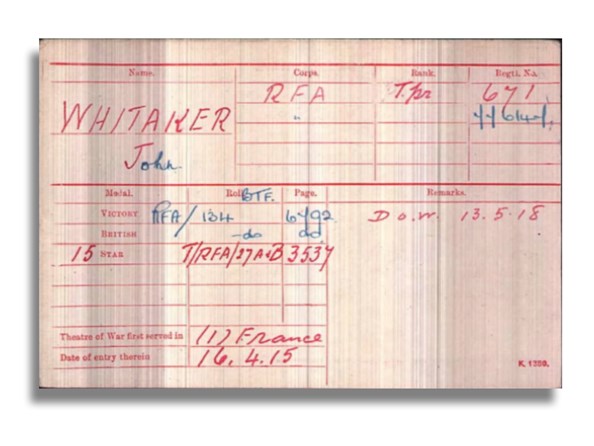 Name. Corps. Rank. Regtl. No.
WHITAKER RFA T.pr 671
John "
Medal. Roll BTF. Page. Remarks.
VICTORY RFA/134 6492 D.o.W. 13.5.18
BRITISH -do do
15 STAR T/RFA/27A&B 3537
Theatre of War first served in (1) France
Date of entry therein 16.4.15
K. 1380.